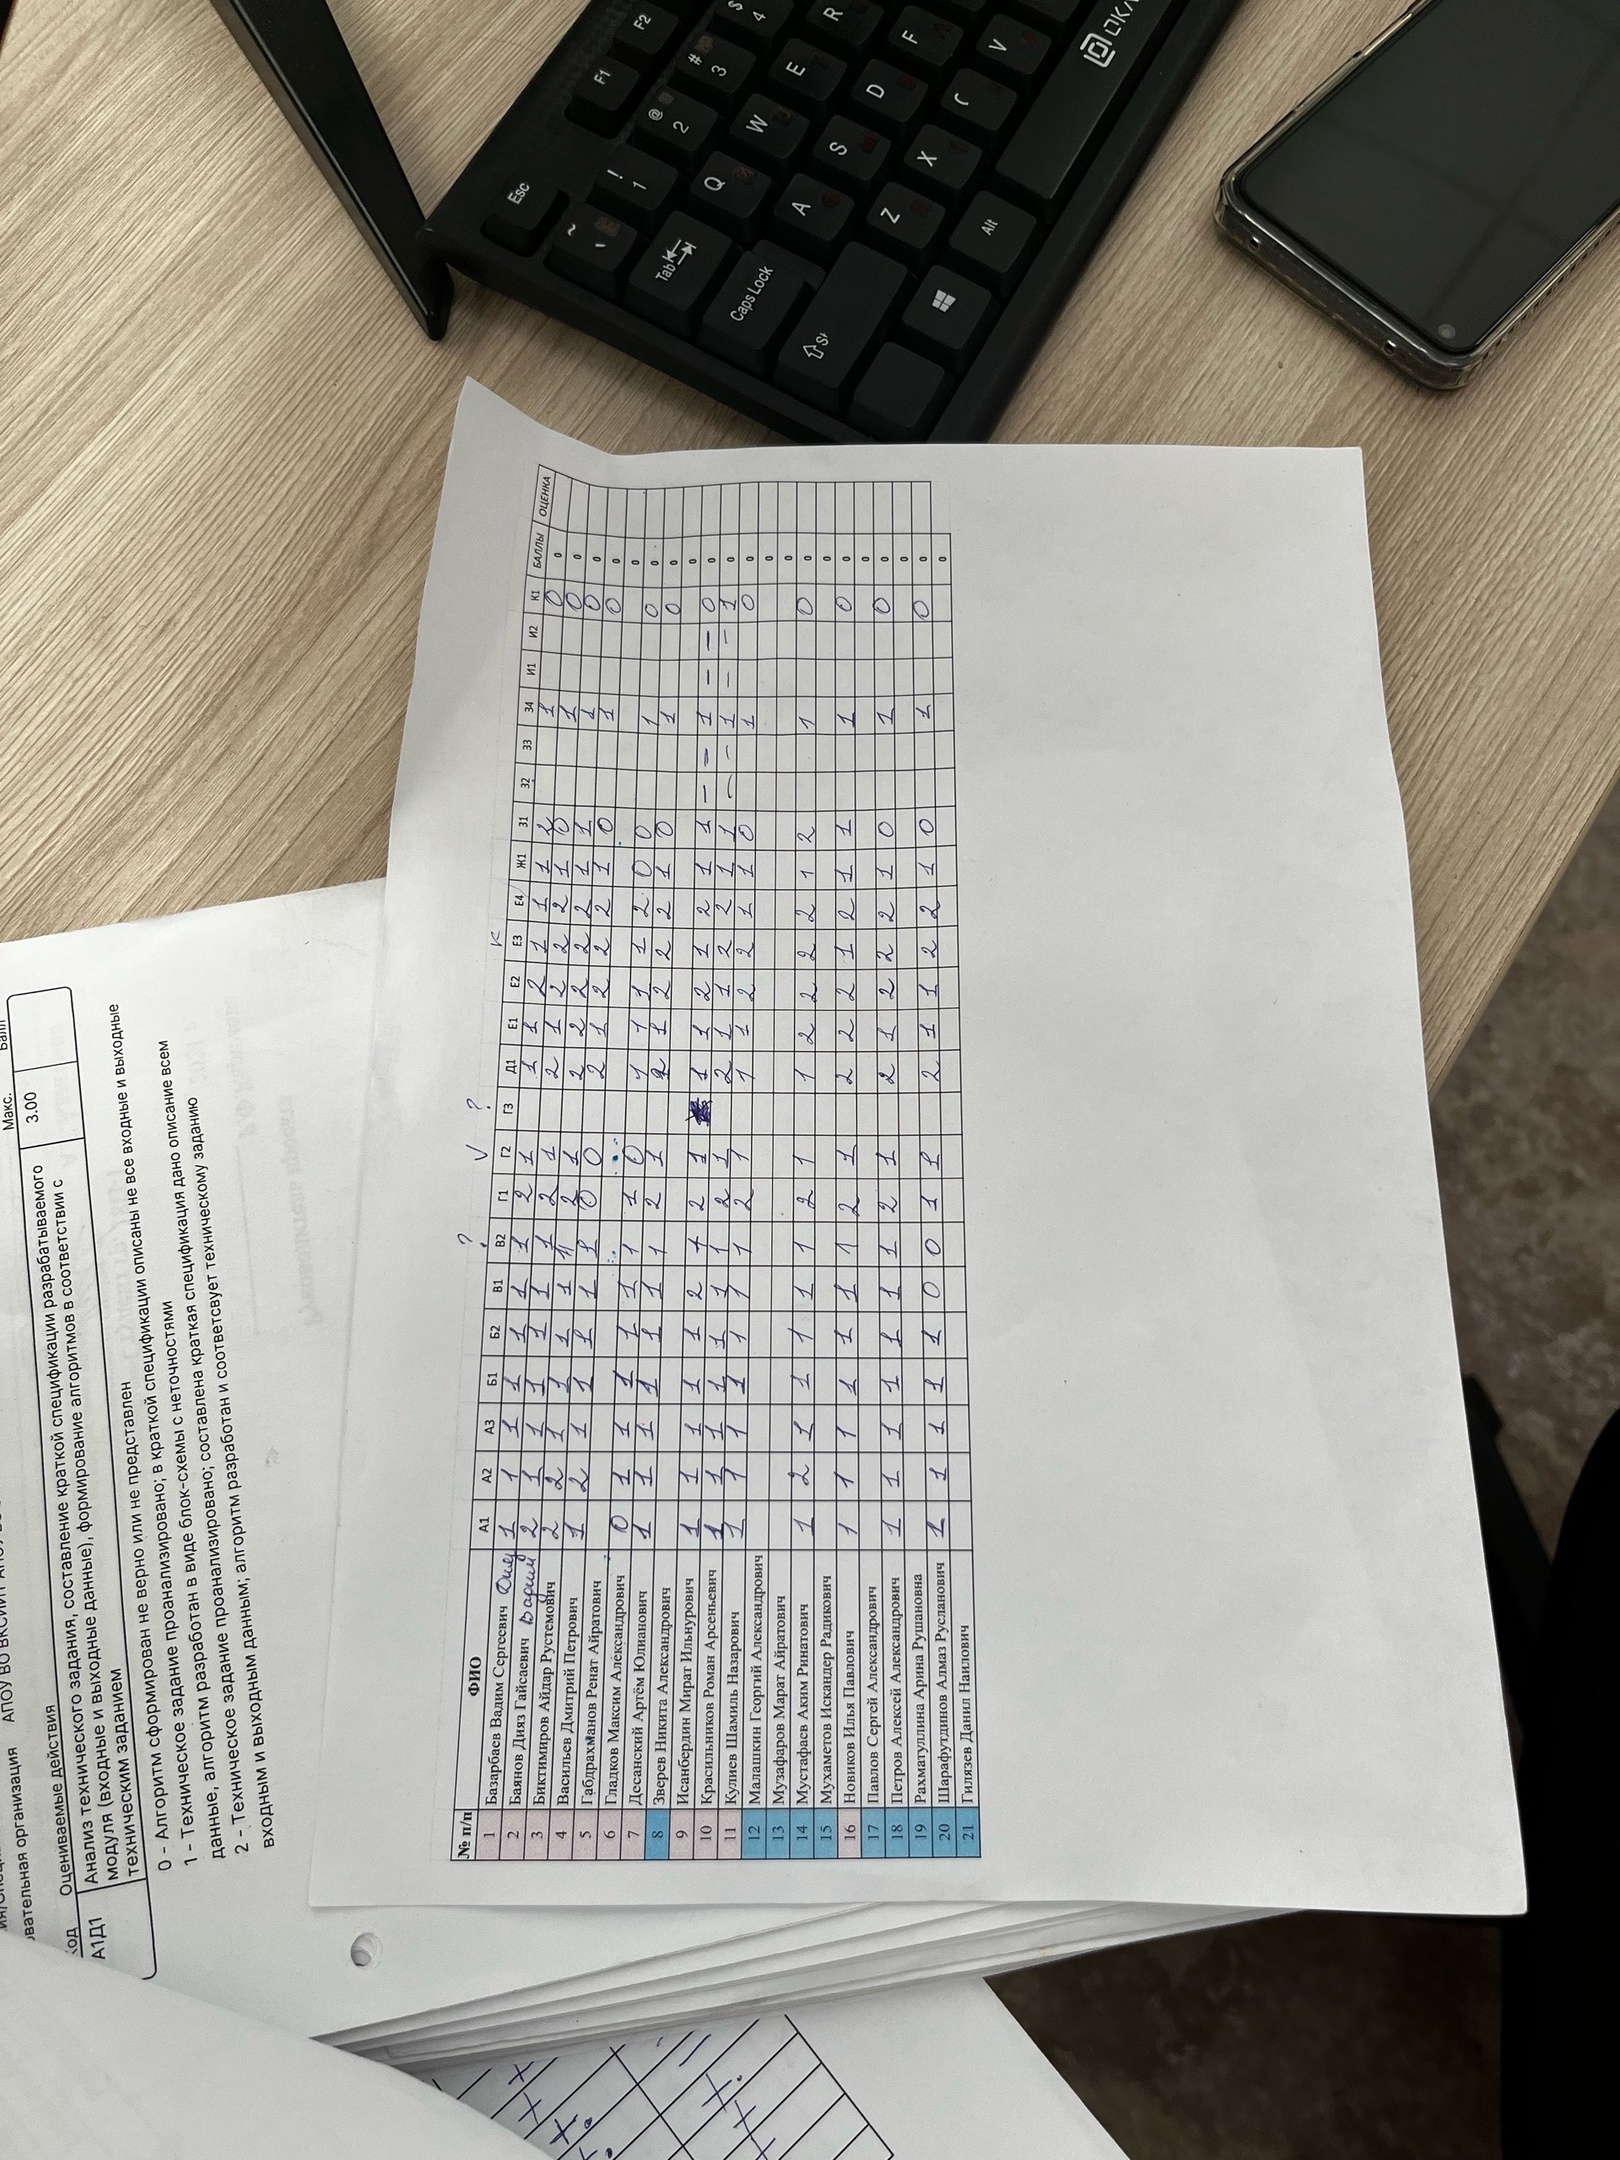 овательная организация АПОУ ВО ВКСИИТ
Код Оцениваемые действия Макс. Балл
А1Д1 Анализ технического задания, составление краткой спецификации разрабатываемого 3.00
модуля (входные и выходные данные), формирование алгоритмов в соответствии с
техническим заданием
0 - Алгоритм сформирован не верно или не представлен
1 - Техническое задание проанализировано; в краткой спецификации описаны не все входные и выходные
данные, алгоритм разработан в виде блок-схемы с неточностями
2 - Техническое задание проанализировано; составлена краткая спецификация дано описание всем
входным и выходным данным; алгоритм разработан и соответсвует техническому заданию
? √ ? к
№ п/п ФИО А1 А2 А3 Б1 Б2 В1 В2 Г1 Г2 Г3 Д1 Е1 Е2 Е3 Е4 Ж1 З1 З2 З3 З4 И1 И2 К1 БАЛЛЫ ОЦЕНКА
1 Базарбаев Вадим Сергеевич 1 1 1 1 1 1 1 2 1 1 1 2 1 1 1 2 1 0 0
2 Баянов Дияз Гайсаевич Вадим 2 1 1 1 1 1 1 2 1 2 1 2 2 2 1 0 1 0 0
3 Биктимиров Айдар Рустемович 2 2 1 1 1 1 1 2 1 2 2 2 2 2 1 1 1 0 0
4 Васильев Дмитрий Петрович 1 2 1 1 1 1 1 0 0 2 1 2 2 2 1 0 1 0 0
5 Габдрахманов Ренат Айратович 0
6 Гладков Максим Александрович 0 1 1 1 1 1 1 1 0 1 1 1 1 2 0 0 1 0 0
7 Десанский Артём Юлианович 1 1 1 1 1 1 1 2 1 2 1 2 2 2 1 0 1 0 0
8 Зверев Никита Александрович 0
9 Исанбердин Мират Ильнурович 1 1 1 1 1 2 + 2 1 1 1 2 1 2 1 1 – – 1 – – 0 0
10 Красильников Роман Арсеньевич 1 1 1 1 1 1 1 2 1 2 1 1 2 2 1 1 – – 1 – – 1 0
11 Кулиев Шамиль Назарович 1 1 1 1 1 1 1 2 1 1 1 2 2 1 1 0 1 0 0
12 Малашкин Георгий Александрович 0
13 Музафаров Марат Айратович 0
14 Мустафаев Аким Ринатович 1 2 1 1 1 1 1 2 1 1 2 2 2 2 1 2 1 0 0
15 Мухаметов Искандер Радикович 0
16 Новиков Илья Павлович 1 1 1 1 1 1 1 2 1 2 2 2 1 2 1 1 1 0 0
17 Павлов Сергей Александрович 0
18 Петров Алексей Александрович 1 1 1 1 1 1 1 2 1 2 1 2 2 2 1 0 1 0 0
19 Рахматуллина Арина Рушановна 0
20 Шарафутдинов Алмаз Русланович 1 1 1 1 1 0 0 1 1 2 1 1 2 2 1 0 1 0 0
21 Гилязев Данил Наилович 0
Esc
F1
F2
~
!
1
@
2
#
3
$
4
Tab
Q
W
E
R
Caps Lock
A
S
D
F
Z
X
C
V
Alt